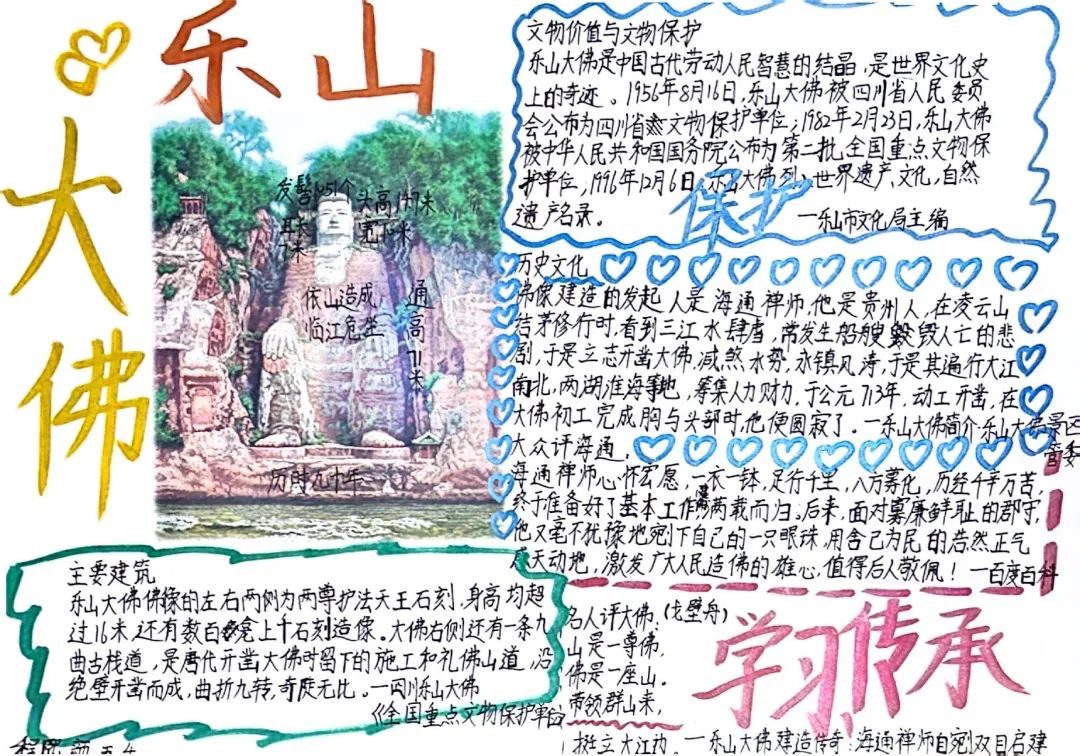 乐山
大佛
发髻1051个
头高14.7米
耳长
7米
宽10米
依山造成
临江危坐
通高71米
历时九十年
文物价值与文物保护
乐山大佛是中国古代劳动人民智慧的结晶，是世界文化史
上的奇迹。1956年8月16日，乐山大佛被四川省人民委员
会公布为四川省文物保护单位；1982年2月23日，乐山大佛
被中华人民共和国国务院公布为第二批全国重点文物保
护单位，1996年12月6日，乐山大佛列入世界遗产文化，自然
遗产名录。
—乐山市文化局主编
保护
历史文化
佛像建造的发起人是海通禅师，他是贵州人，在凌云山
结茅修行时，看到三江水肆虐，常发生船艘毁人亡的悲
剧，于是立志开凿大佛，减煞水势，永镇风涛，于是其遍行大江
南北，两湖淮海等地，筹集人力财力，于公元713年，动工开凿，在
大佛初工完成胸与头部时，他便圆寂了。—乐山大佛简介乐山大佛景区
管委
大众评海通。
海通禅师心怀宏愿，一衣一钵，足行千里，八方募化，历经千辛万苦，
终于准备好了基本工作满两载而归。后来，面对寡廉鲜耻的郡守，
他又毫不犹豫地剜下自己的一只眼珠，用舍己为民的浩然正气
感天动地，激发广大人民造佛的雄心，值得后人敬佩！—百度百科
主要建筑
乐山大佛佛像的左右两侧为两尊护法天王石刻，身高均超
过16米，还有数百龛上千石刻造像。大佛右侧还有一条九
曲古栈道，是唐代开凿大佛时留下的施工和礼佛山道，沿
绝壁开凿而成，曲折九转，奇陡无比。—四川乐山大佛
《全国重点文物保护单位》
名人评大佛：(戈壁舟)
山是一尊佛，
佛是一座山。
带领群山来，
挺立大江边。
学习传承
—乐山大佛建造传奇：海通禅师自剜双目启建